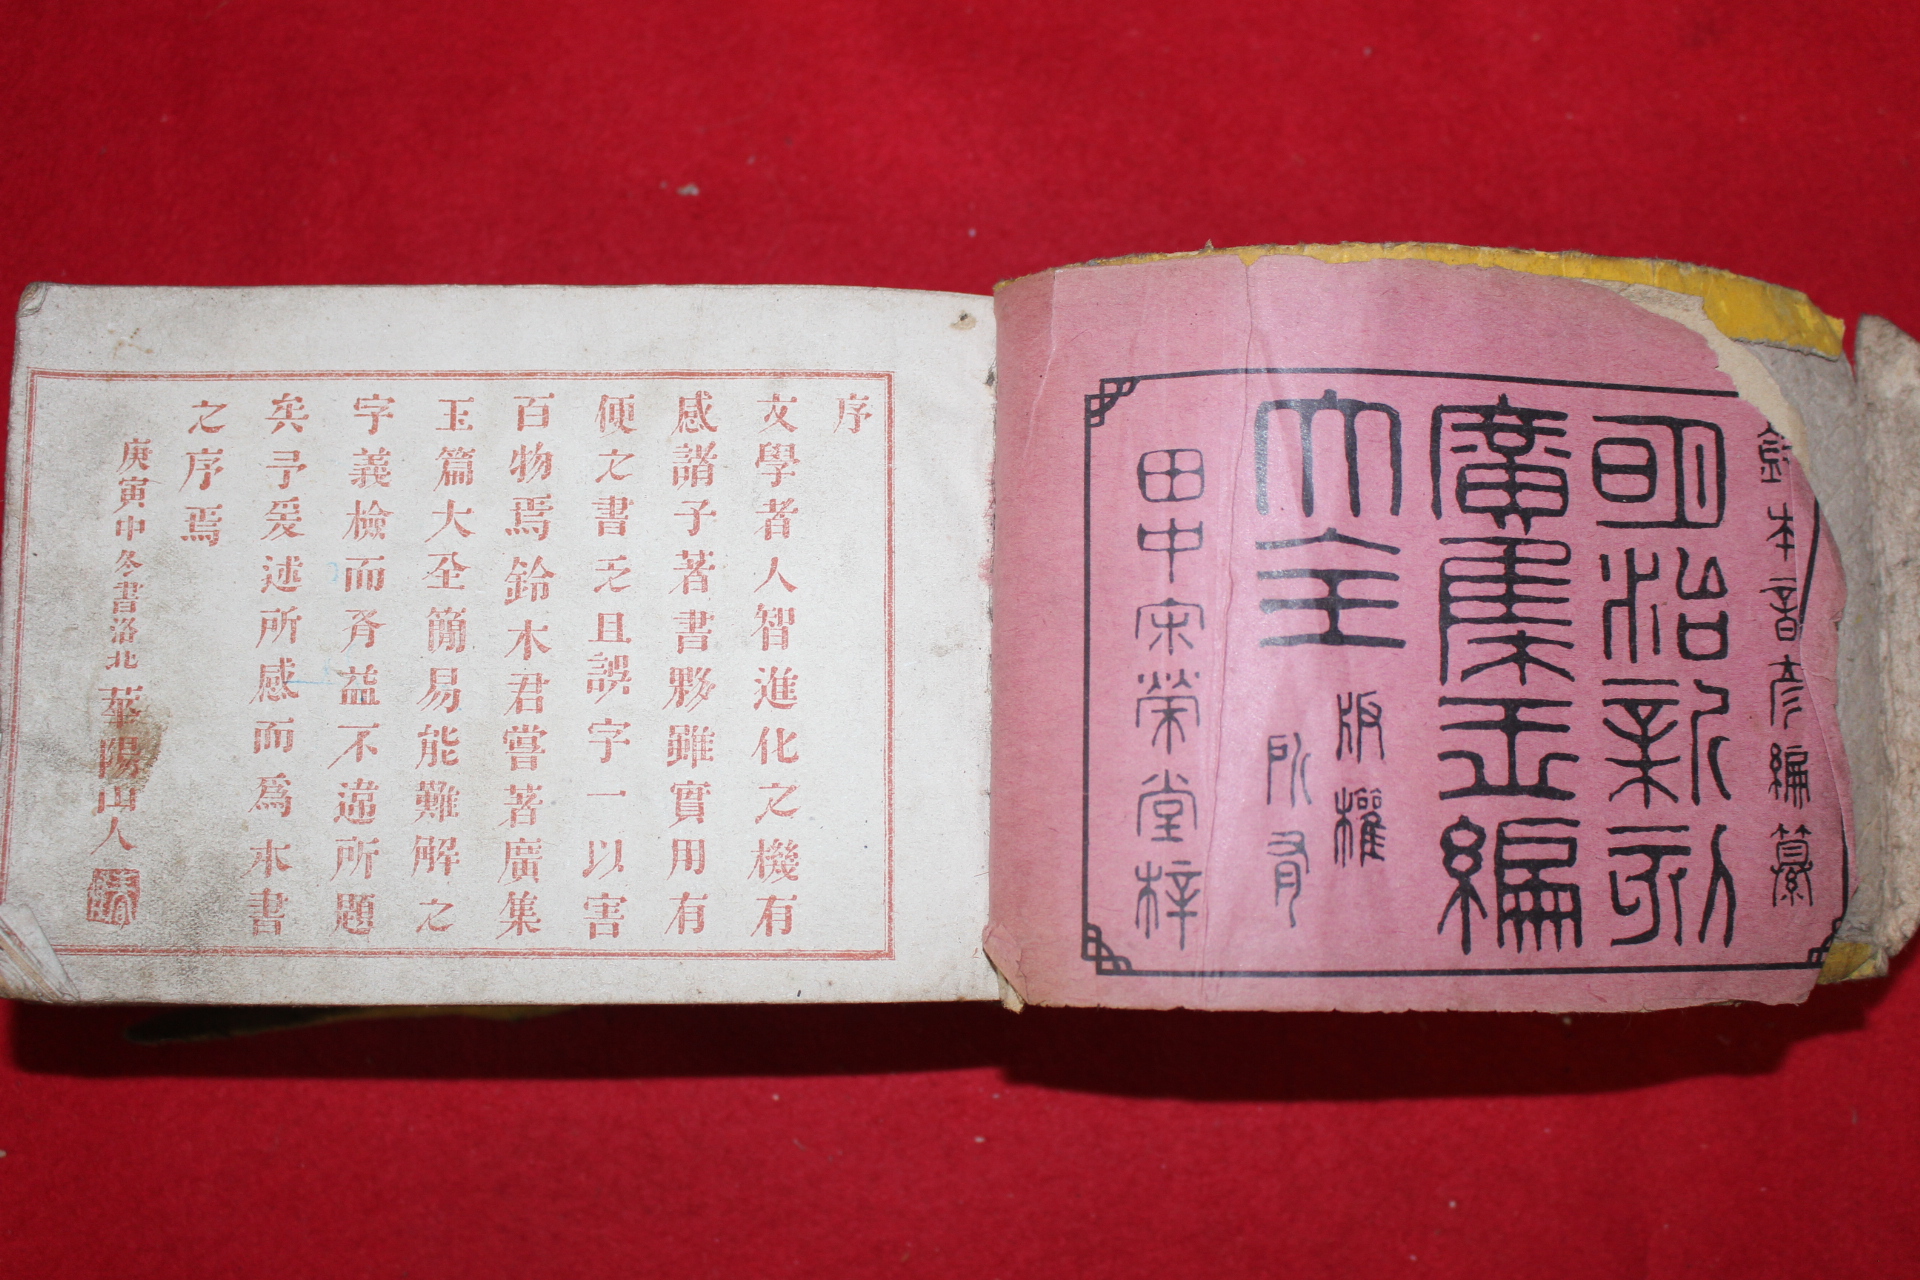 鈴木音彦編纂
明治新刻
廣集玉編
大全
版權
所有
田中宋榮堂梓
序
文學者人智進化之機有
感諸子著書夥雖實用有
便之書乏且誤字一以害
百物焉鈴木君嘗著廣集
玉篇大全簡易能難解之
字義檢而有益不違所題
矣予爰述所感而爲本書
之序焉
庚寅中冬書洛北 華陽山人